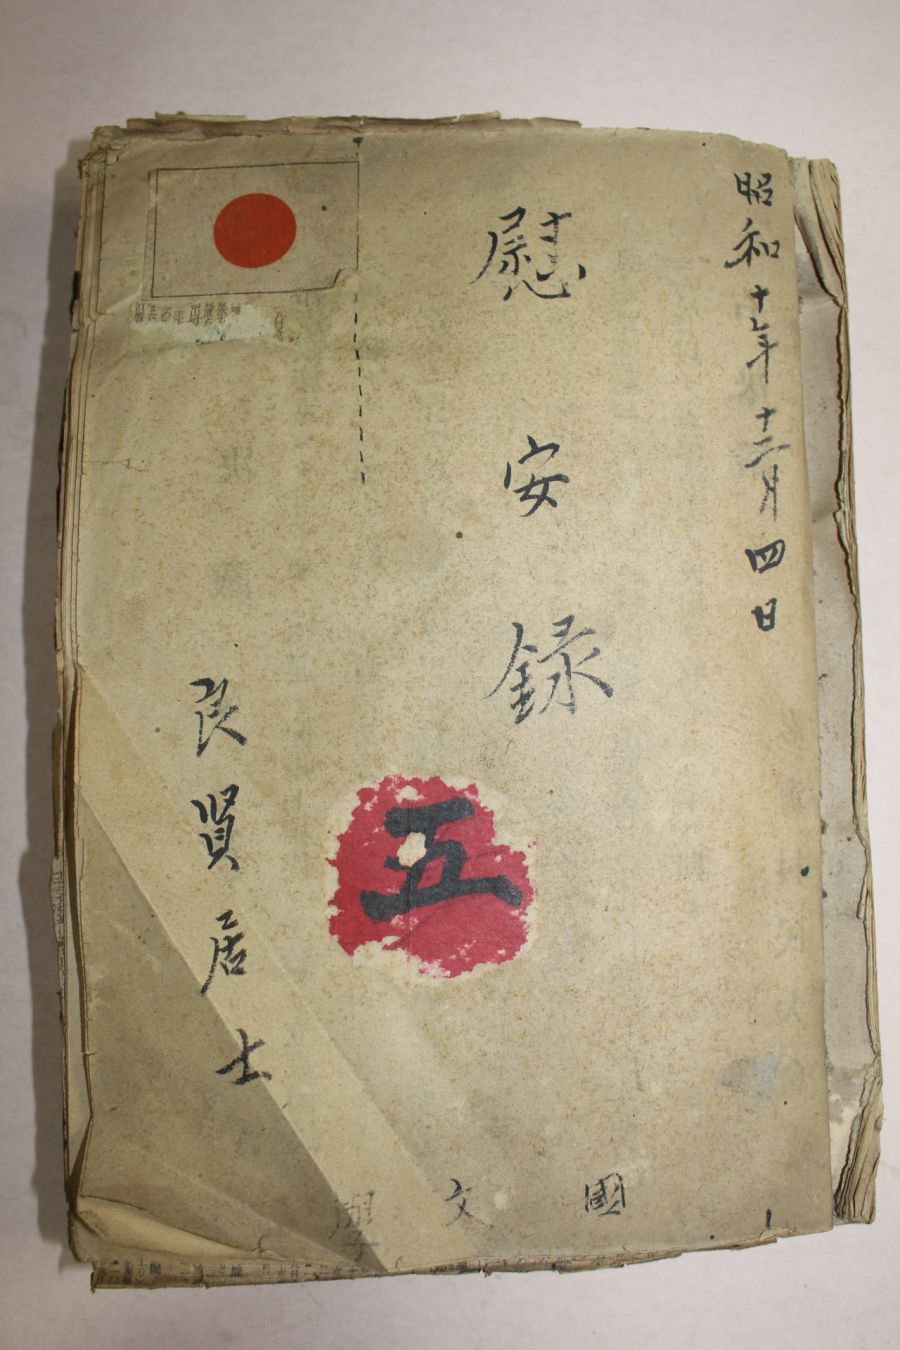 昭和十年十二月四日
慰安録
五
良賢居士
國文學